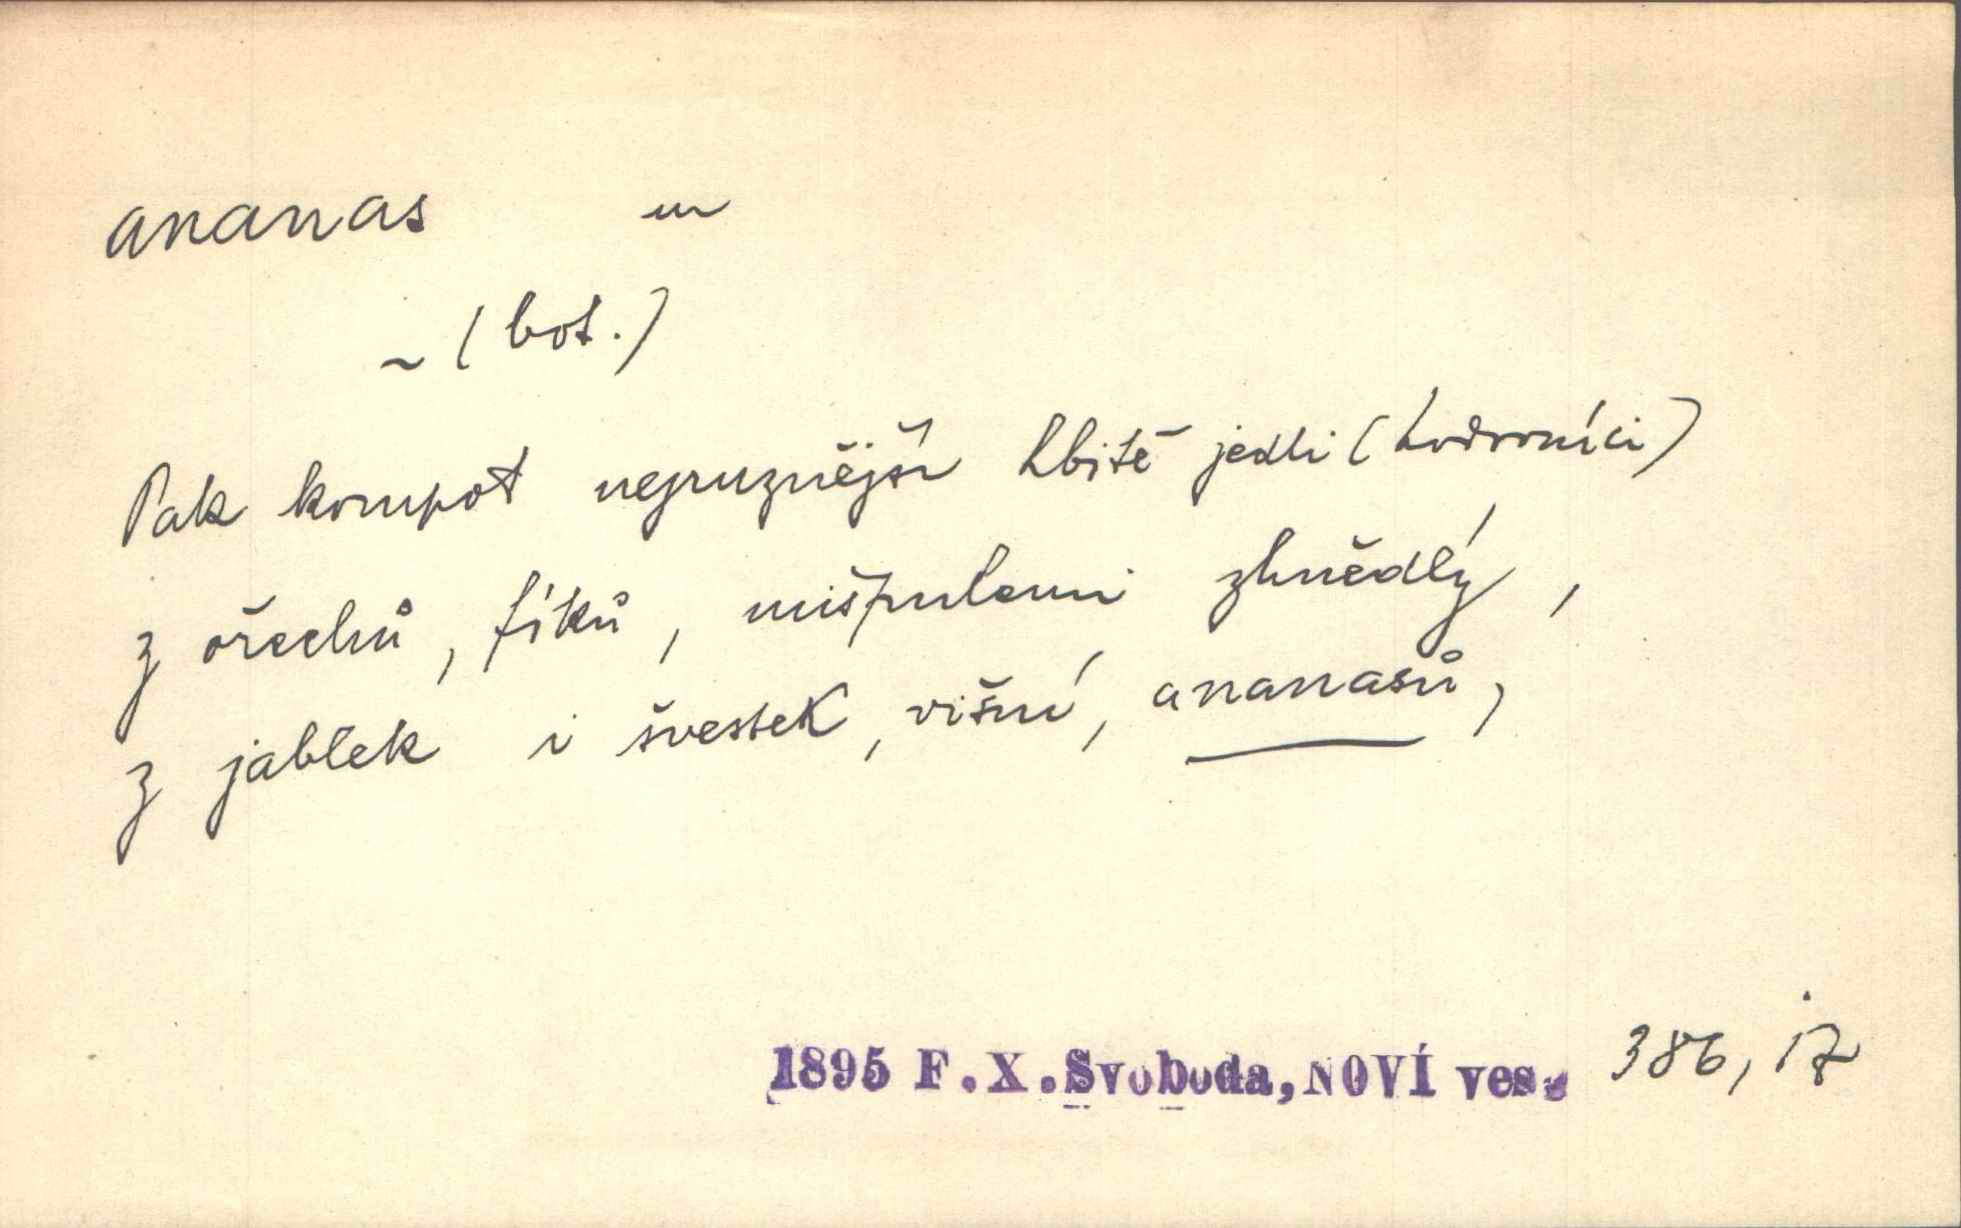 ananas m
~ (bot.)
Pak kompot nejruznější hbitě jedli (hodovníci)
z ořechů, fíků, mišpulemi zhnědlý,
z jablek i švestek, višní, ananasů,
1895 F.X.Svoboda, NOVÍ ves. 386, 17